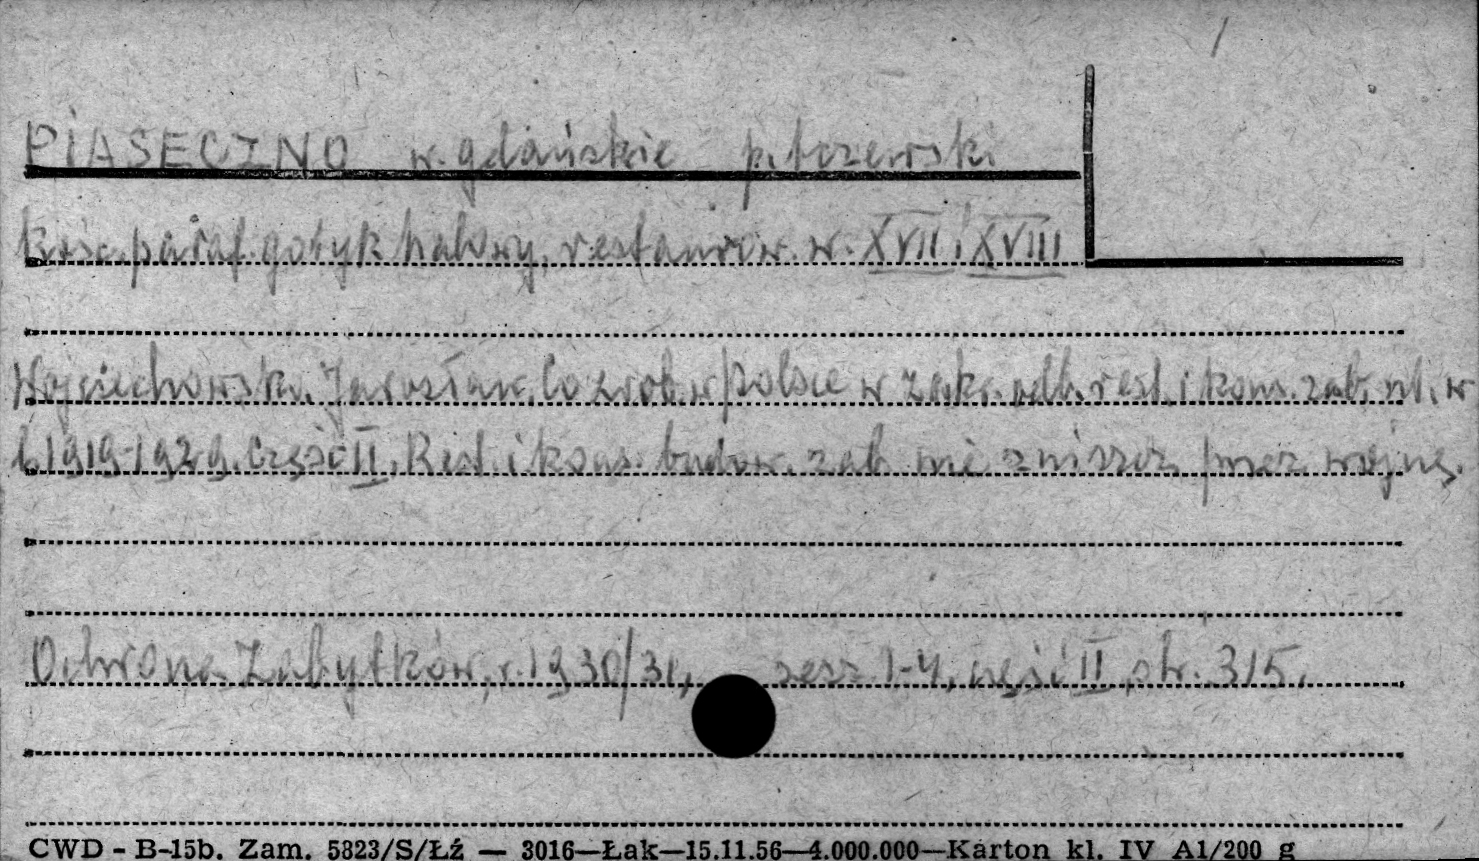 PIASECZNO w. gdańskie p. tczewski
kośc. paraf. gotyk halowy, restaurow. w. XVII i XVIII
Wojciechowski Jarosław, Co zrob. w Polsce w zakr. odb. rest. i kons. zab. w
l. 1919-1929. Część II, Rest. i kons. budow. zab. nie zniszcz. przez wojnę.
Ochrona Zabytków, r. 1930/31, zesz. 1-4, część II, str. 315.
CWD - B-15b. Zam. 5823/S/Łź — 3016—Łak—15.11.56—4.000.000—Karton kl. IV A1/200 g